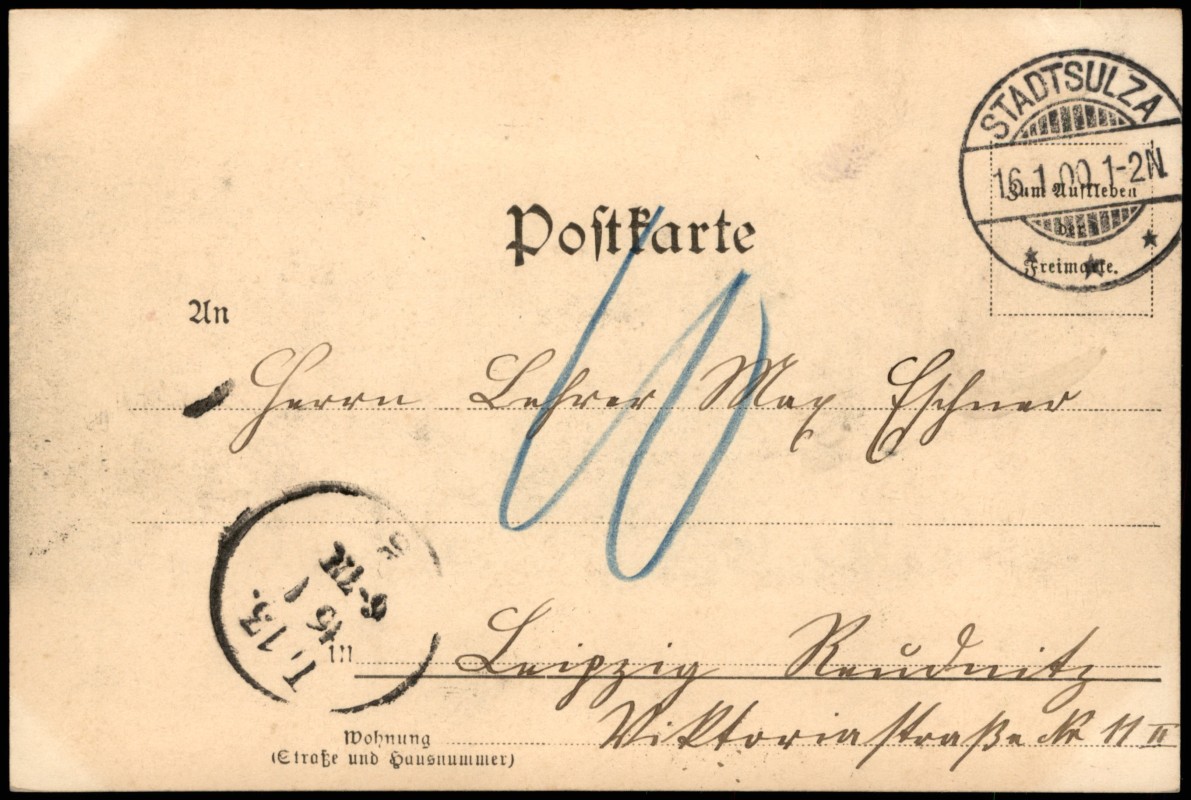 STADTSULZA
16.1.00.1-2N.
Zum Aufkleben
der
Freimarke.
Postkarte
10
An
Herrn Lehrer Max Eschner
L. 13.
in
Leipzig Reudnitz
Viktoriastraße No 11 II
Wohnung
(Straße und Hausnummer)